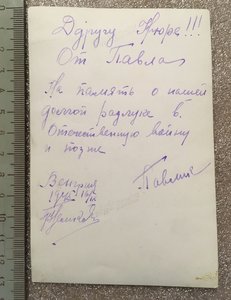 Ддругу Нюра!!!
От Павла
На память о нашей
долгой разлуке в
Отечественную войну
и позже
Венгрия Павлик